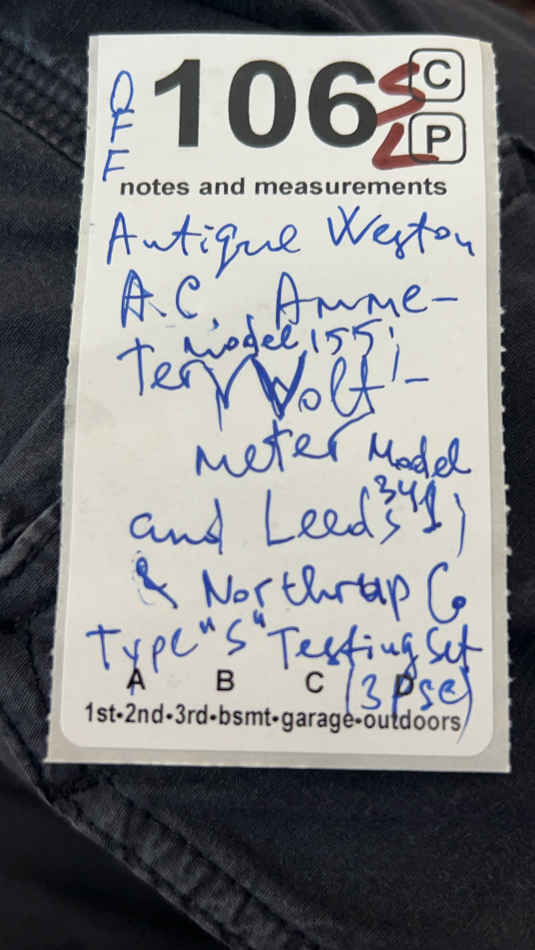 OFF
106
SL
C
P
notes and measurements
Antique Weston
A.C. Amme-
model 155;
ter, Volt-
meter Model
341;
and Leeds
& Northrup Co
Type "S" Testing Set
(3 psc)
A B C D
1st•2nd•3rd•bsmt•garage•outdoors